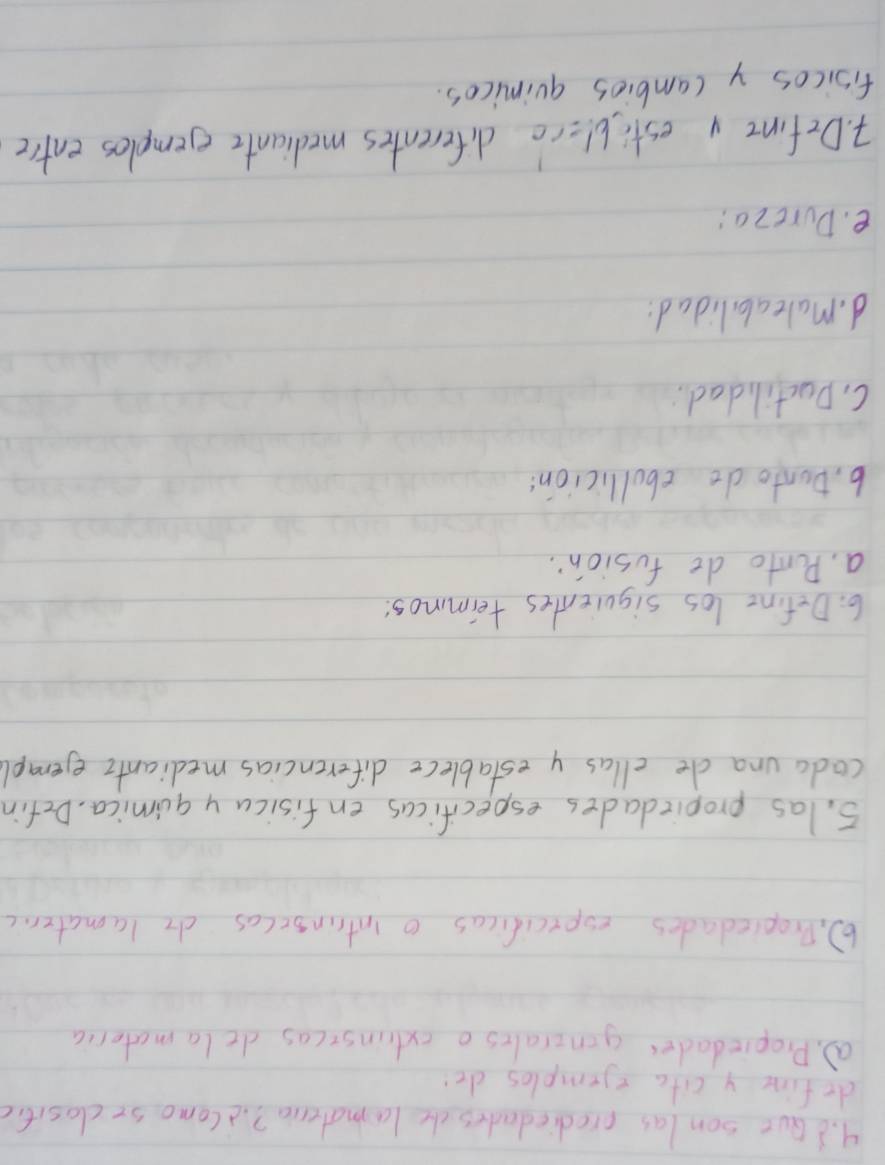 4. ¿Que son las prodiedades de la materia? ¿Como se clasific
define y cita ejemplos de:
a). Propiedades generales o extrinsecas de la materia
b). Propiedades especificas o intrinsecas de la materi
5. las propiedades especificas en fisica y quimica. Defin
cada una de ellas y establece diferencias mediante ejempl
6. Define los siguientes términos:
a. Punto de fusión:
b. Punto de ebullición:
c. Ductilidad:
d. Maleabilidad:
e. Dureza:
7. Define y diferentes mediante ejemplos entre
fisicos y cambios quimicos.